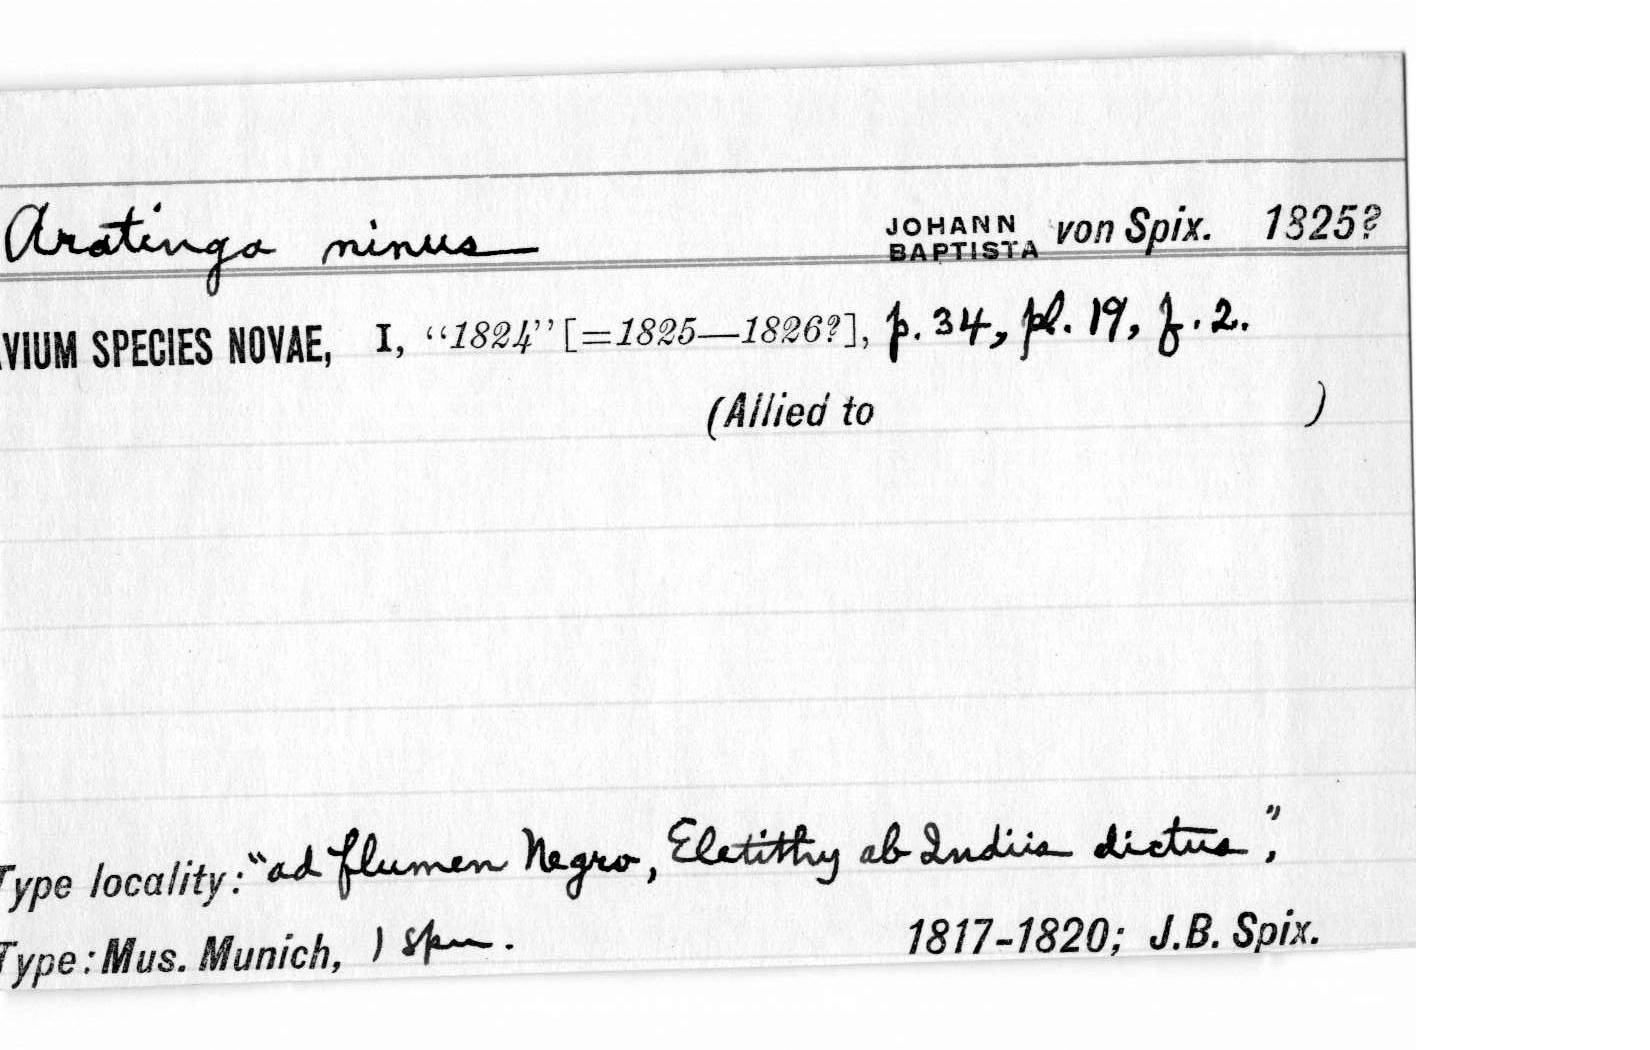 Aratinga ninus JOHANN BAPTISTA von Spix. 1825?
AVIUM SPECIES NOVAE, I, “1824” [=1825—1826?], p. 34, pl. 19, f. 2.
(Allied to )
Type locality: “ad flumen Negro, Eletithy ab Indiis dictus”,
Type: Mus. Munich, 1 spm. 1817-1820; J.B. Spix.